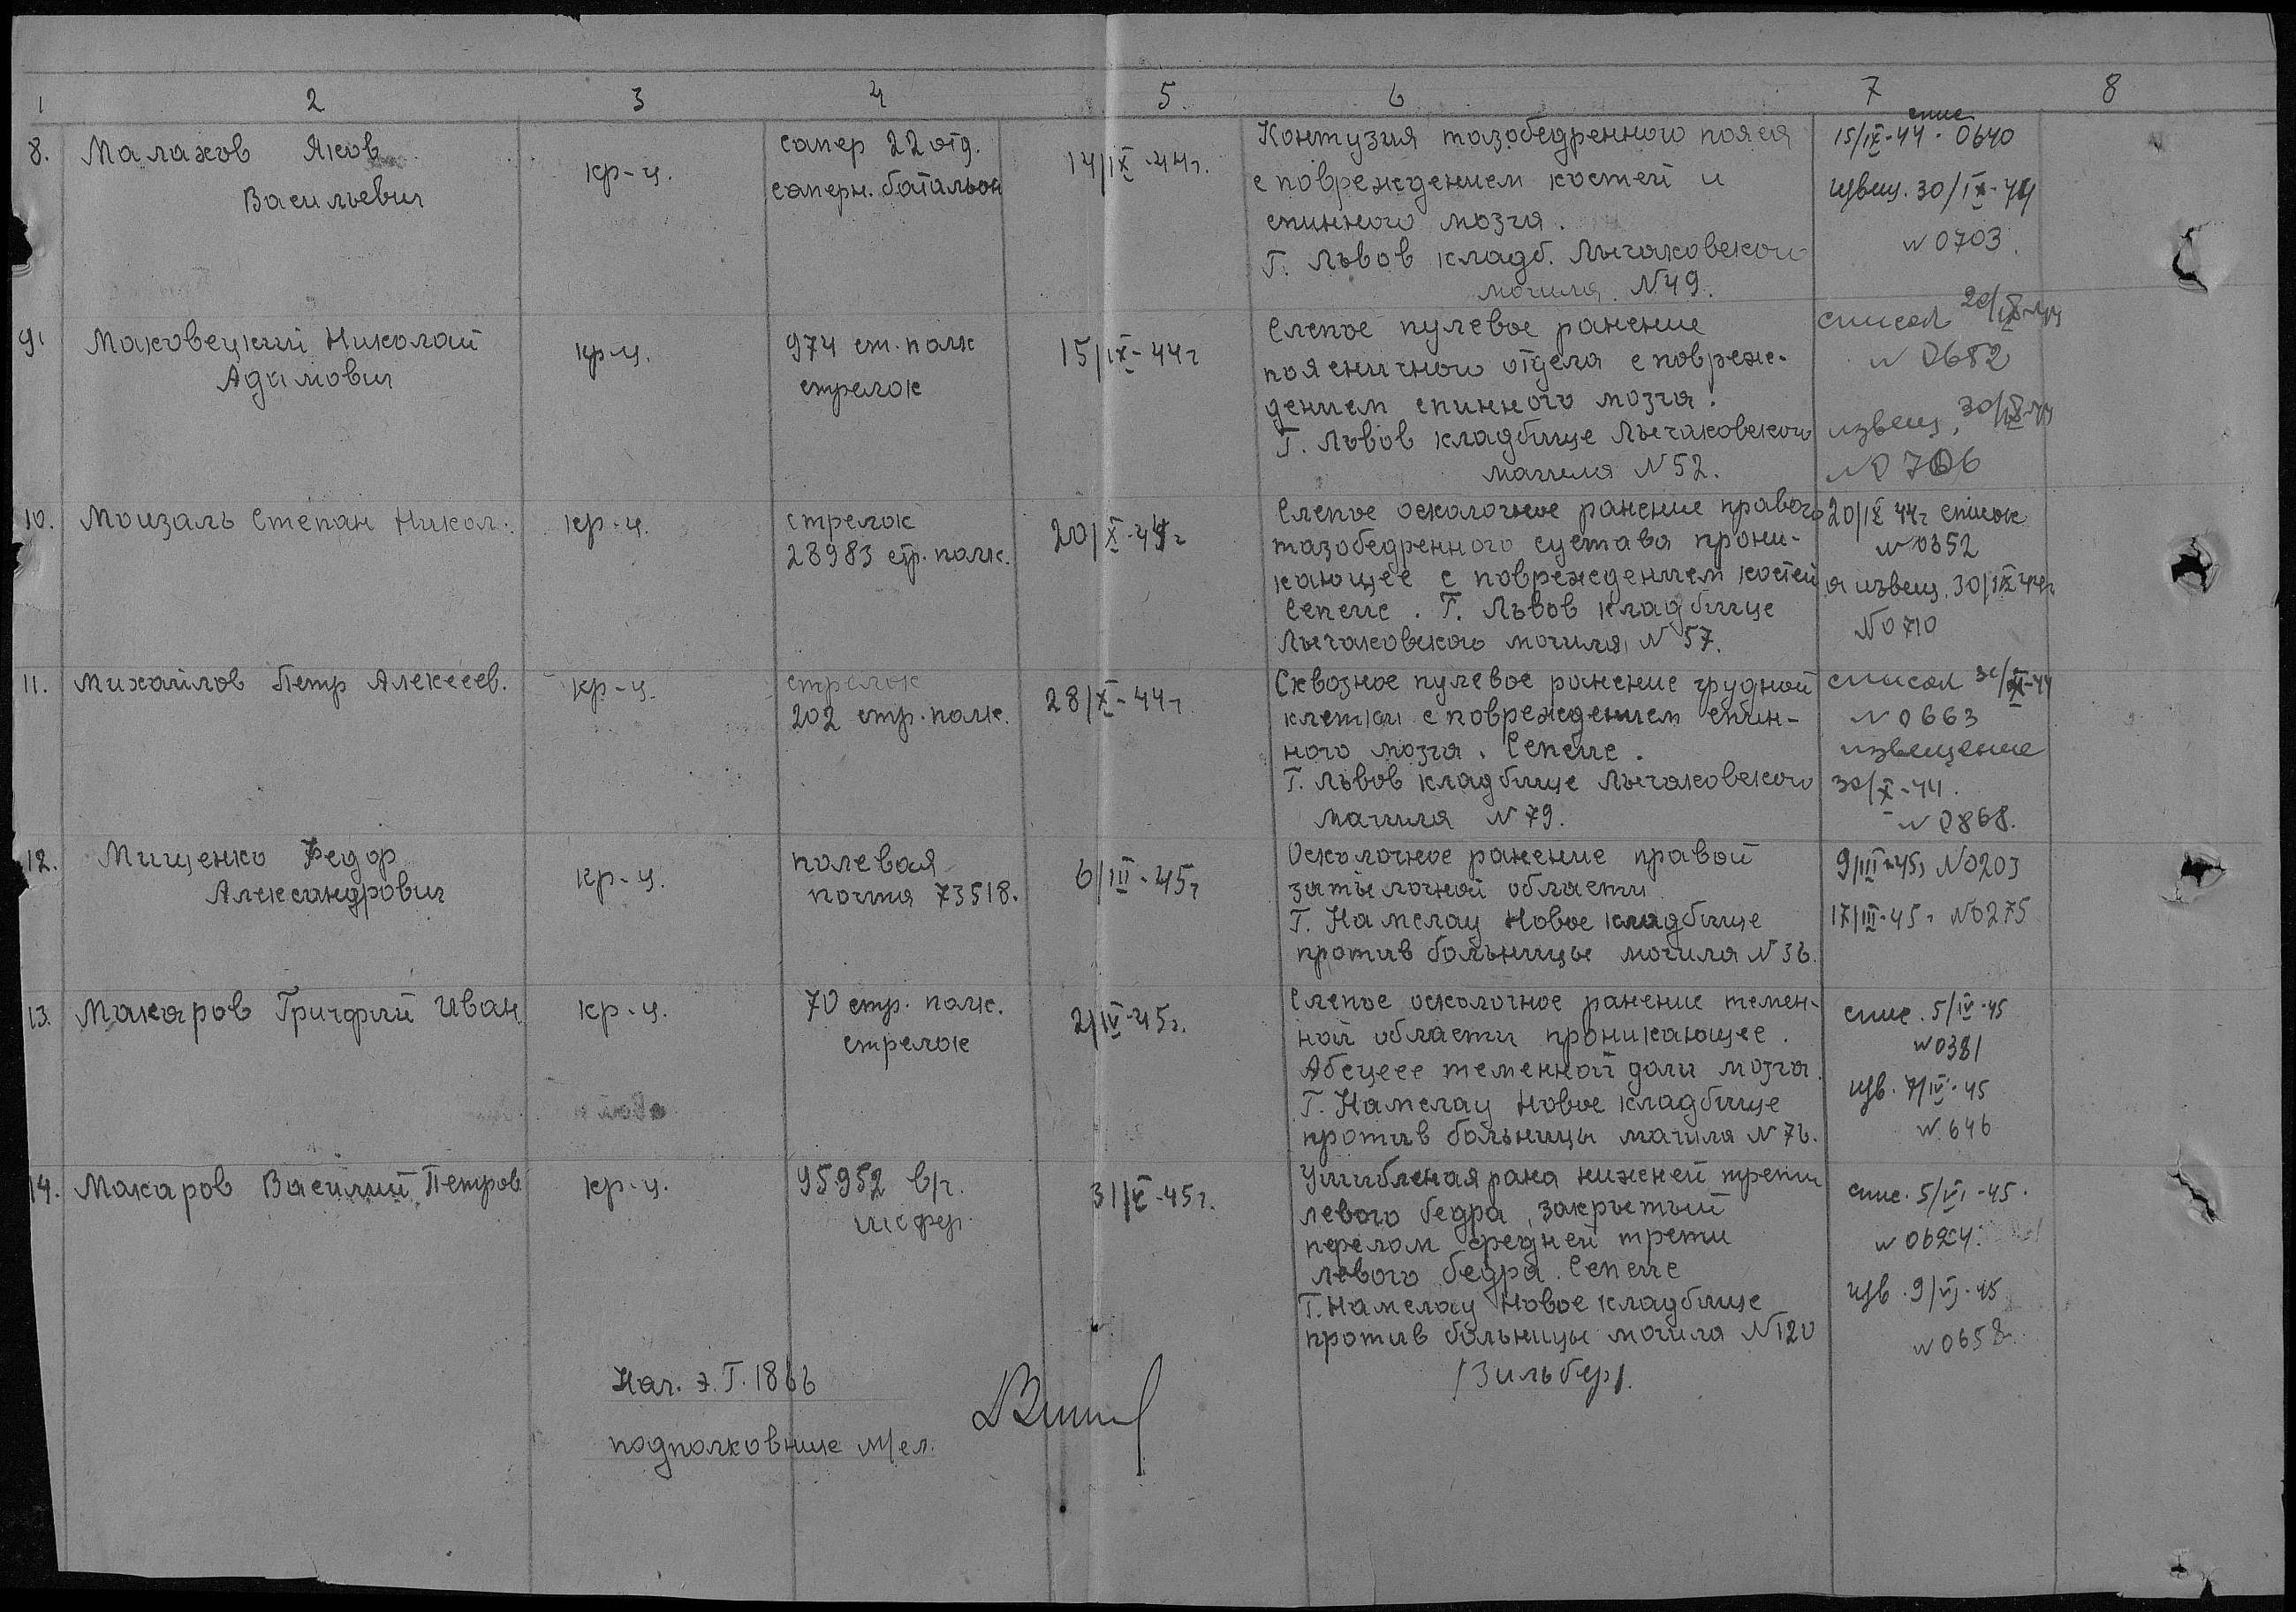 1 2 3 4 5. 6 7 8
8. Малахов Яков
Васильевич
кр-ц.
сапер 22 отд.
саперн. батальон
14/IX-44г.
Контузия тазобедренного пояса
с повреждением костей и
спинного мозга.
Г. Львов кладб. Лычаковского
могила N49.
спис
15/IX-44. 0640
извещ. 30/IX-44
N 0703.
9. Маковецкий Николай
Адамович
кр-ц.
974 ст. полк
стрелок
15/IX-44г
Слепое пулевое ранение
поясничного отдела с повреж-
дением спинного мозга.
Г. Львов кладбище Лычаковского
могила N52.
список 20/IX-44
N 0682
извещ. 30/IX-44
N 0706
10. Моизаль Степан Никол.
кр-ц.
стрелок
28983 стр. полк.
20/IX-44г
Слепое осколочное ранение правого
тазобедренного сустава прони-
кающее с повреждением костей
Сепсис. Г. Львов кладбище
Лычаковского могила N 57.
20/IX 44г список
N 0352
извещ. 30/IX 44г
N0710
11. Михайлов Петр Алексеев.
кр-ц.
стрелок
202 стр. полк.
28/X-44г.
Сквозное пулевое ранение грудной
клетки с повреждением спин-
ного мозга. Сепсис.
Г. Львов кладбище Лычаковского
могила N 79.
список
N 0663
извещение
30/X-44.
N 0868.
12. Мищенко Федор
Александрович
кр-ц.
полевая
почта 73518.
6/III-45г
Осколочное ранение правой
затылочной области
Г. Намслау Новое кладбище
против больницы могила N36.
9/III-45г N0203
17/III-45г N0275
13. Макаров Григорий Иван
кр-ц.
70 стр. полк.
стрелок
2/IV-45г.
Слепое осколочное ранение темен-
ной области проникающее.
Абсцесс теменной доли мозга.
Г. Намслау Новое кладбище
против больницы могила N 76.
спис. 5/IV-45
N 0381
изв. 7/IV-45
N 646
14. Макаров Василий Петров
кр-ц.
95952 в/ч.
шофер
31/V-45г.
Ушибленая рана нижней трети
левого бедра, закрытый
перелом средней трети
левого бедра. Сепсис
Г. Намслау Новое кладбище
против больницы могила N120
спис. 5/VI-45.
N 0624.
изв. 9/VI-45
N 0658.
Нач. Э.Г. 1866
подполковник м/сл.
/Зильбер/.